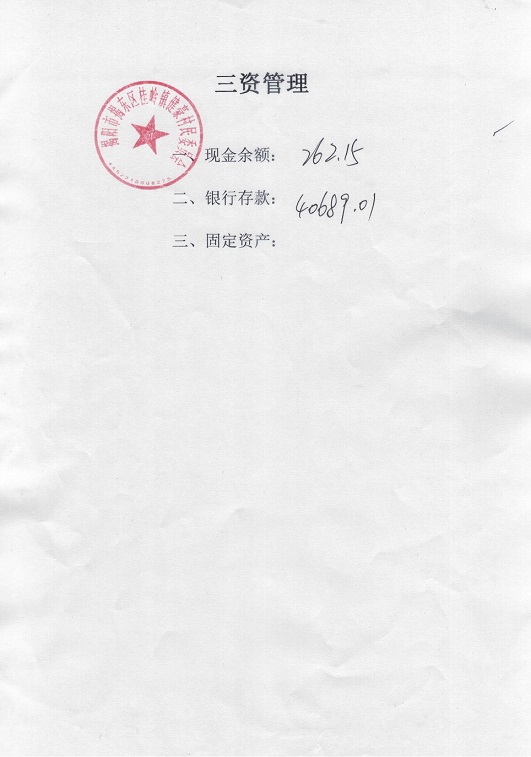 三资管理
揭阳市揭东区桂岭镇健豪村民委员会
、现金余额: 262.15
二、银行存款: 40689.01
三、固定资产: